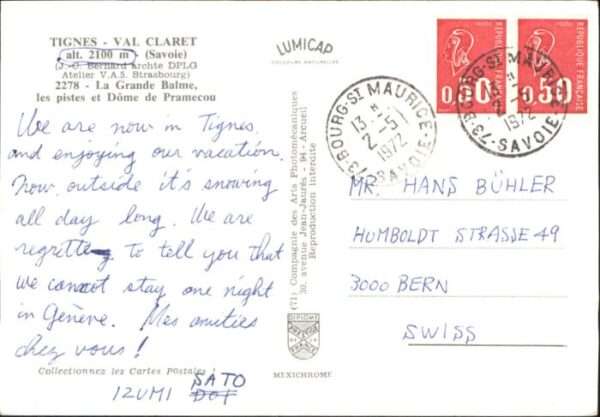 TIGNES - VAL CLARET
alt. 2100 m - (Savoie)
(J.-C. Bernard archte DPLG
Atelier V.A.S. Strasbourg)
2278 - La Grande Balme,
les pistes et Dôme de Pramecou
We are now in Tignes
and enjoying our vacation.
Now, outside it's snowing
all day long. We are
regretting to tell you that
we cannot stay one night
in Genève. Mes amities
chez vous!
Collectionnez les Cartes Postales
IZUMI SATO
LUMICAP
COULEURS NATURELLES
(71) Compagnie des Arts Photomécaniques
30, avenue Jean-Jaurès - 94-Arcueil
Reproduction Interdite
DIPLOME
MEXICHROME
0,50
0,50
REPUBLIQUE FRANÇAISE
73-BOURG-ST MAURICE
13 H
2-5
1972
SAVOIE
73-BOURG-ST MAURICE
13 H
2-5
1972
SAVOIE
MR. HANS BÜHLER
HUMBOLDT STRASSE 49
3000 BERN
SWISS